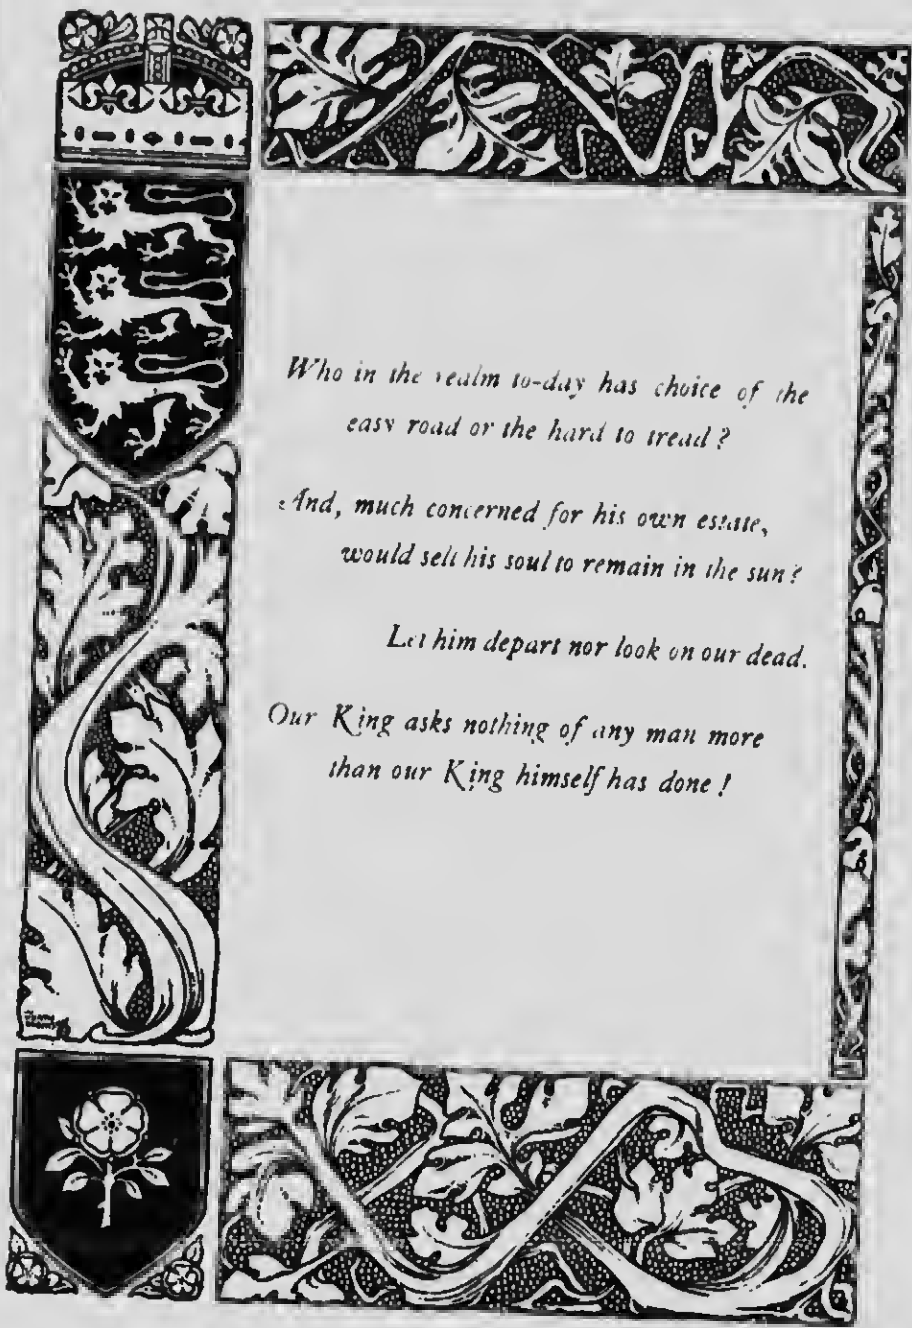 Who in the realm to-day has choice of the
easy road or the hard to tread?
And, much concerned for his own estate,
would sell his soul to remain in the sun?
Let him depart nor look on our dead.
Our King asks nothing of any man more
than our King himself has done!